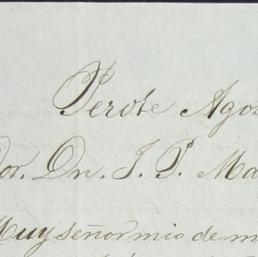 Perote Agos
Sor. Dn. J. P. Ma
Muy señor mio de m